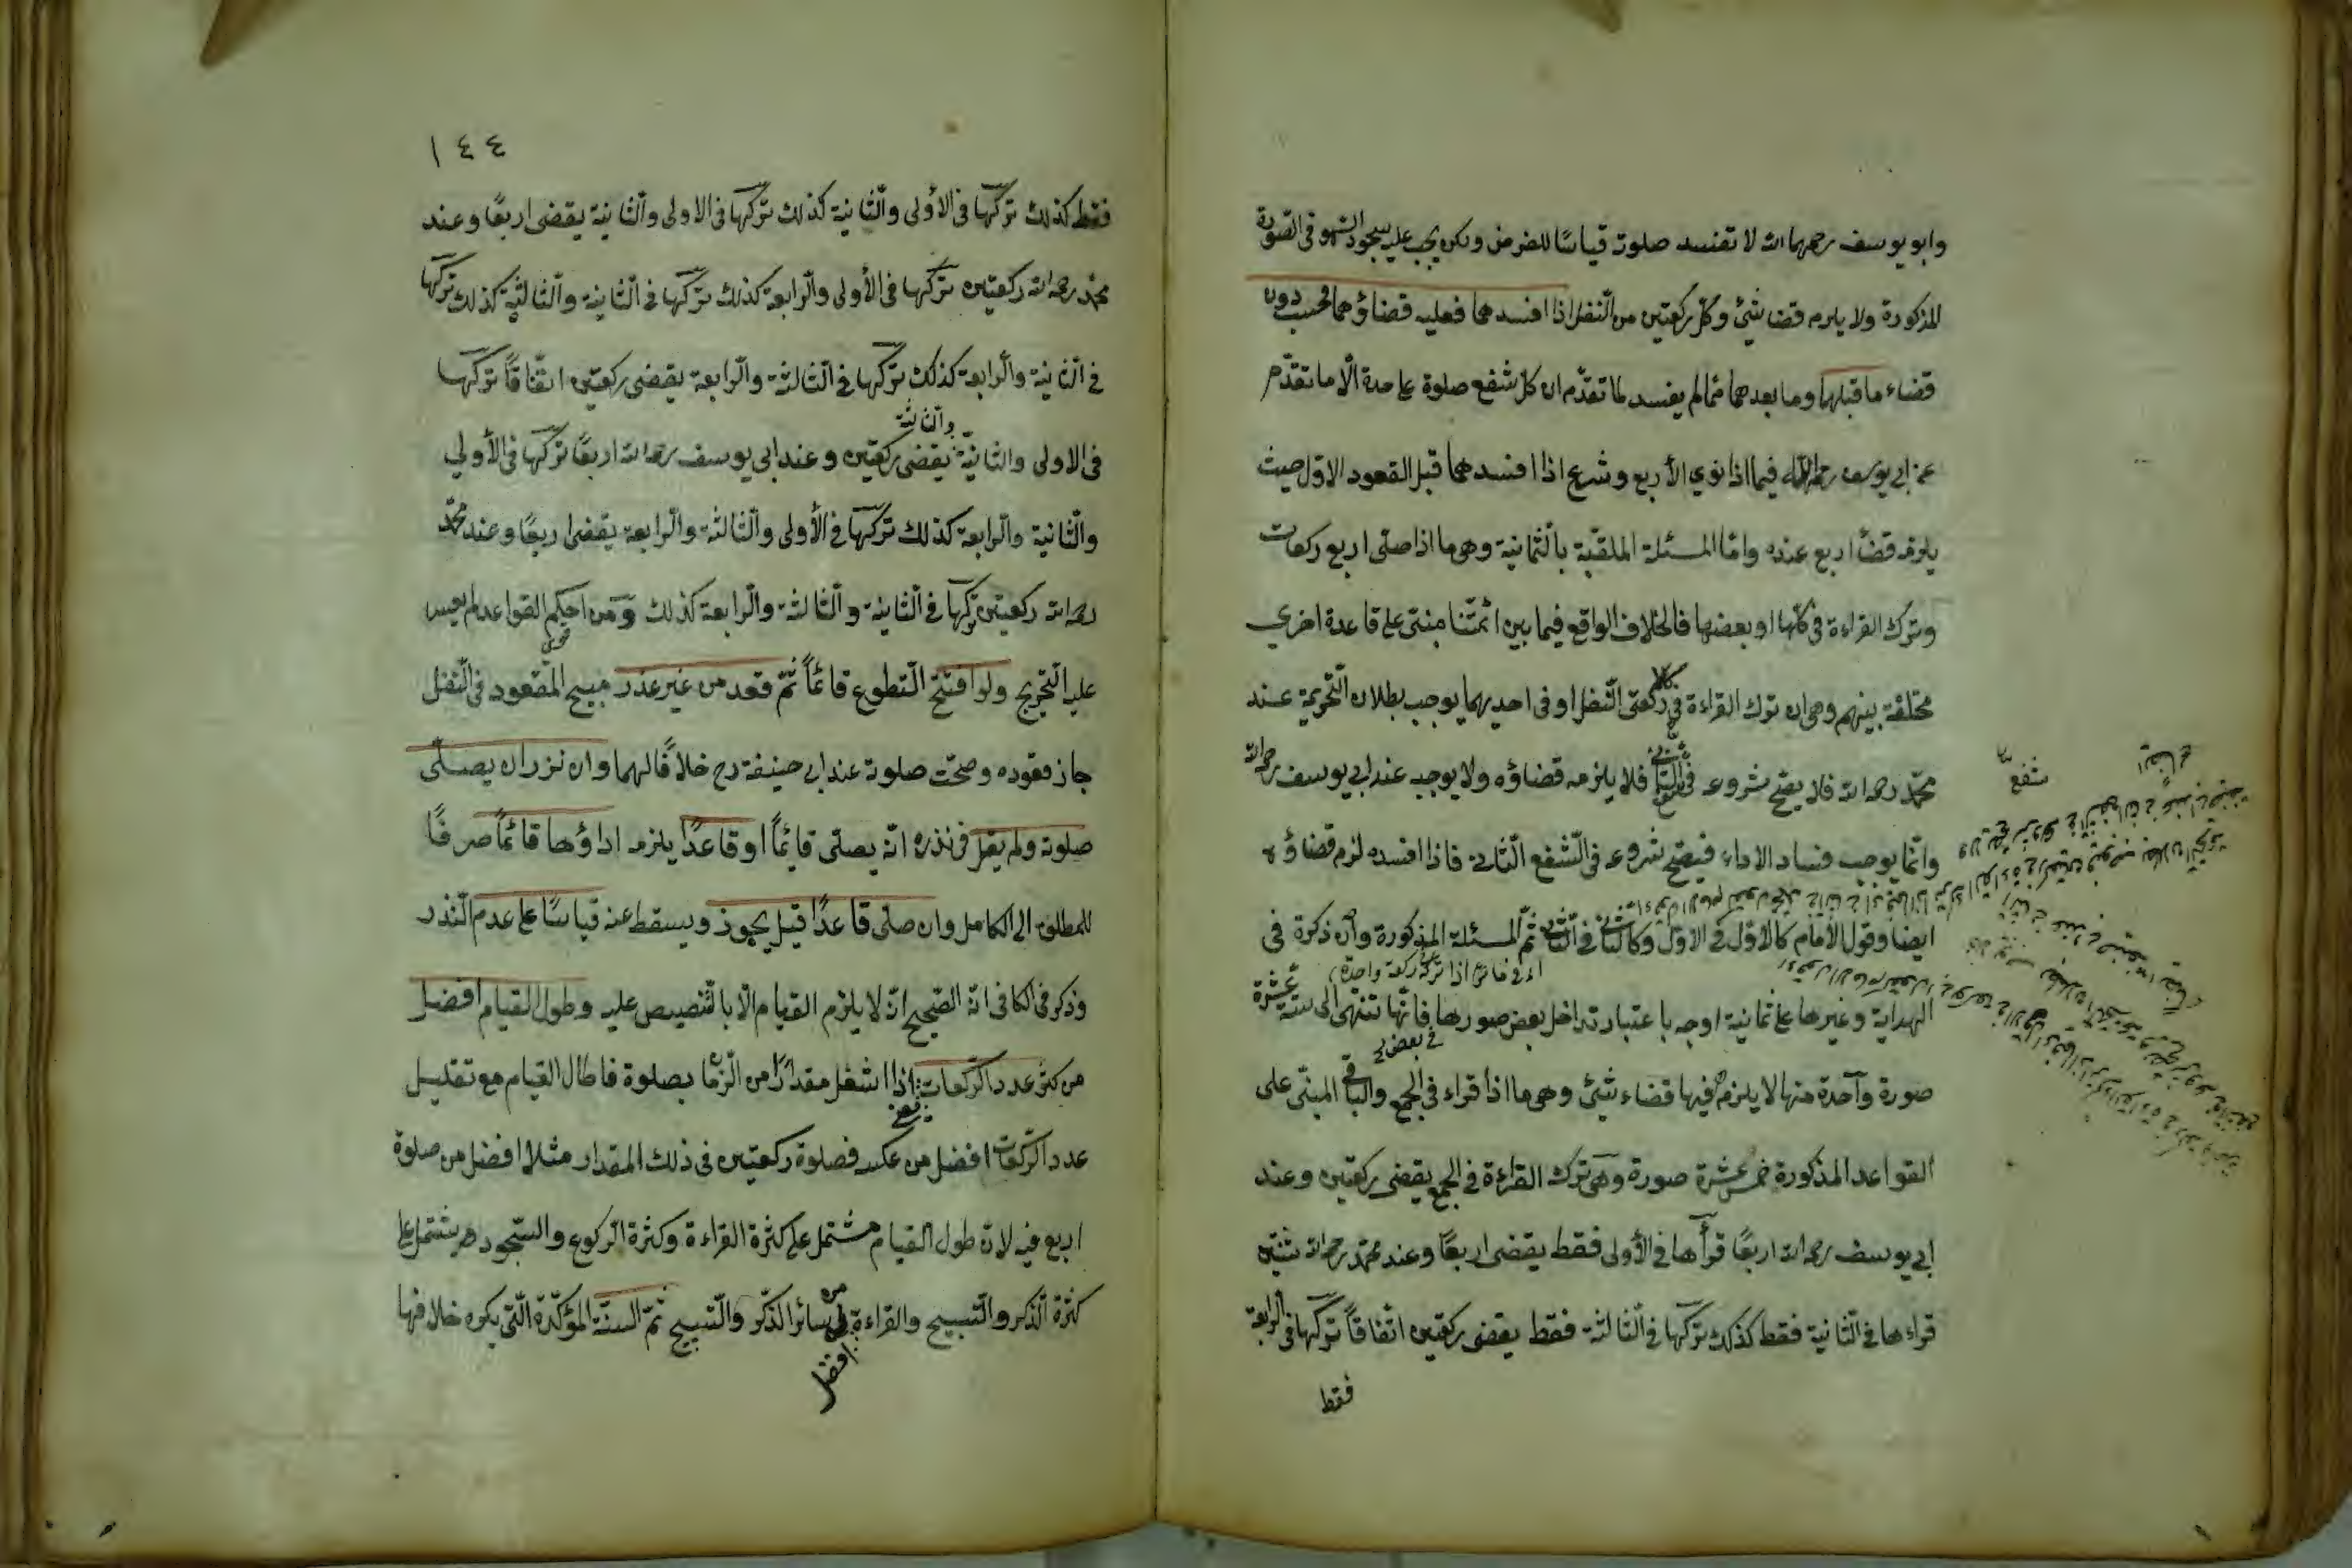 وابو يوسف رحمهما الله لا تفسد صلوته قياسًا للفرض ولكن يجب عليه سجود السهو فى الصورة
المذكورة ولا يلزم قضا شئ وكل ركعتين من النفل اذا افسدهما فعليه قضاؤهما فحسب دون
قضاء ما قبلهما وما بعدهما مما لم يفسد لما تقدّم ان كل شفع صلوة على حدة الّا ما تقدّم
عن ابى يوسف رحمه الله فيما اذا نوى الأربع وشرع اذا افسدهما قبل القعود الاول حيث
يلزمه قضأ اربع عنده وامّا المسئلة الملقّبة بالثمانية وهى ما اذا صلى اربع ركعات
وترك القراءة فى كلّها او بعضها فالخلاف الواقع فيما بين ائمّتنا مبنى على قاعدة اخرى
مختلفة بينهم وهى ان ترك القراءة فى كلا ركعتى النفل او فى احديهما يوجب بطلان التحريمة عند
محمّد رحمه الله فلا يصحّ شروعه فى الشفع الثانى فلا يلزمه قضاؤه ولا يوجب عند ابى يوسف رحمه الله
وانّما يوجب فساد الاداء فيصحّ شروعه فى الشفع الثانى فاذا افسده لزم قضاؤه
ايضا وقول الأمام كالاوّل فى الاول وكالثانى فى الثانى ثمّ المسئلة المذكورة وان ذكرة فى
اى فيما اذا ترك ركعة واحدة
الهداية وغيرها على ثمانية اوجه باعتبار تداخل بعض صورها فانّها تنتهى الى ستة عشرة
فى بعض
صورة وآحدة منها لا يلزم فيها قضاء شئ وهى ما اذا قراء فى الجمع والباقى المبنّى على
القواعد المذكورة خمس عشرة صورة وهى ترك القراءة فى الجمع يقضى ركعتين وعند
ابى يوسف رحمه الله اربعًا قرأها فى الأولى فقط يقضى اربعًا وعند محمّد رحمه الله ثنتين
قراءها فى الثّانية فقط كذلك تركها فى الثّالثة فقط يقضى ركعتين اتّفاقاً تركها فى الرابعة
فقط
شفع
ايضاء
١٤٤
فقط كذلك تركها فى الأولى والثّانية كذلك تركها فى الاولى والثانية يقضى اربعًا وعند
محمّد رحمه الله ركعتين تركها فى الأولى والرابعة كذلك تركها فى الثانية والثالثة كذلك تركها
فى الثانية والرابعة كذلك تركها فى الثالثة والرابعة يقضى ركعتين اتّفاقًا تركها
والثالثة
فى الاولى والثانية يقضى ركعتين وعند ابى يوسف رحمه الله اربعًا تركها فى الأولى
والثانية والرابعة كذلك تركها فى الأولى والثالثة والرابعة يقضى اربعًا وعند محمّد
رحمه الله ركعتين تركها فى الثانية والثالثة والرابعة كذلك ومن احكم القواعد لم يعسر
عليه التخريج ولو افتتح التطوع قائمًا ثمّ قعد من غير عذر مبيح للقعود فى النفل
جاز قعوده وصحّت صلوته عند ابى حنيفة رح خلافًا لهما وان نزر ان يصلّى
صلوة ولم يقل فى نذره انّه يصلى قائِمًا او قاعدًا يلزمه اداؤها قائمًا صرفًا
للمطلق الى الكامل وان صلى قاعدًا قيل يجوز ويسقط عنه قياسًا على عدم النّذر
وذكر فى الكافى انّه الصّحيح انّه لا يلزم القيام الّا بالتّنصيص عليه وطول القيام افضل
من كثر عدد الرّكعات يعنى اذا اشغل مقدارًا من الزّمان بصلوة فاطال القيام مع تقليل
عدد الرّكعات افضل من عكسه فصلوة ركعتين فى ذلك المقدار مثلا افضل من صلوة
اربع فيه لانّ طول القيام مشتمل على كثرة القراءة وكثرة الرّكوع والسّجود مشتمل على
كثرة الذكر والتسبيح والقراءة افضل من سائر الذّكر والتّسبيح ثمّ السنّة المؤكّدة الّتى يكره خلافها